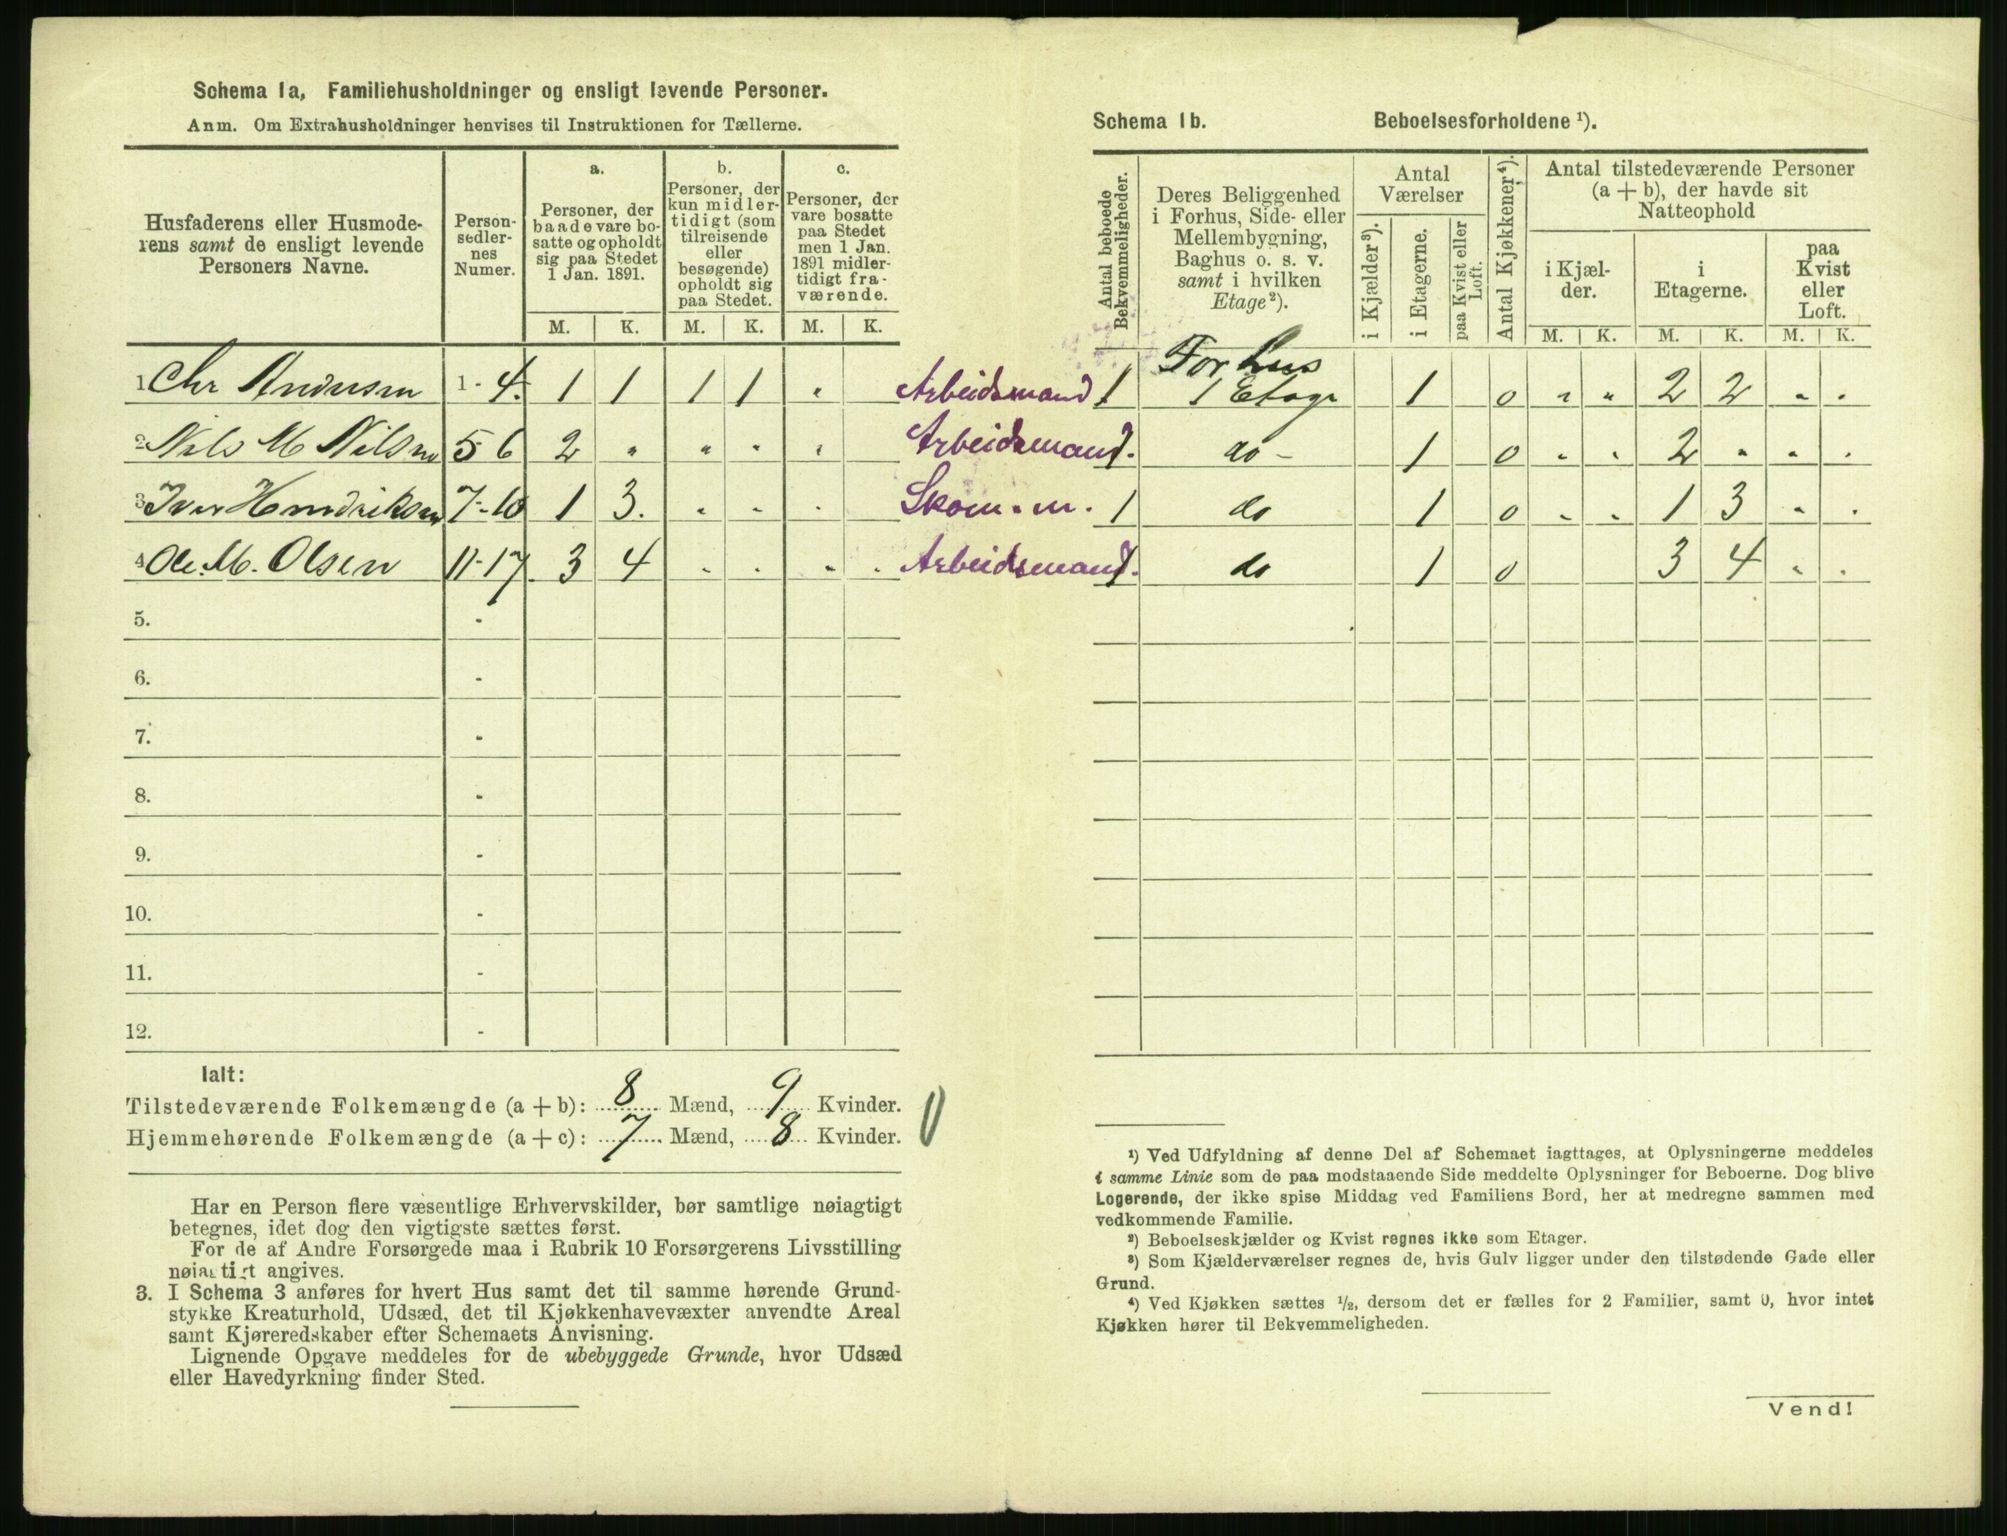 Schema 1a, Familiehusholdninger og ensligt levende Personer.
Anm. Om Extrahusholdninger henvises til Instruktionen for Tællerne.
Husfaderens eller Husmode-
rens samt de ensligt levende
Personers Navne.
Person-
sedler-
nes
Numer.
a.
Personer, der
baade vare bo-
satte og opholdt
sig paa Stedet
1 Jan. 1891.
b.
Personer, der
kun midler-
tidigt (som
tilreisende
eller
besøgende)
opholdt sig
paa Stedet.
c.
Personer, der
vare bosatte
paa Stedet
men 1 Jan.
1891 midler-
tidigt fra-
værende.
M. K. M. K. M. K.
1 Chr Andersen 1 - 4. 1 1 1 1 " Arbeidsmand
2 Nils M Nilsen 5-6 2 " " " " Arbeidsmand.
3 Iver Hendriksen 7-10 1 3. " " " Skom. m.
4 Ole. M. Olsen 11-17 3 4 " " " " Arbeidsmand.
5. -
6. -
7. -
8. -
9. -
10. -
11. -
12. -
Ialt:
Tilstedeværende Folkemængde (a + b): 8 Mænd, 9 Kvinder.
Hjemmehørende Folkemængde (a + c): 7 Mænd, 8 Kvinder.
Har en Person flere væsentlige Erhvervskilder, bør samtlige nøiagtigt
betegnes, idet dog den vigtigste sættes først.
For de af Andre Forsørgede maa i Rubrik 10 Forsørgerens Livsstilling
nøiagtigt angives.
3. I Schema 3 anføres for hvert Hus samt det til samme hørende Grund-
stykke Kreaturhold, Udsæd, det til Kjøkkenhavevæxter anvendte Areal
samt Kjøreredskaber efter Schemaets Anvisning.
Lignende Opgave meddeles for de ubebyggede Grunde, hvor Udsæd
eller Havedyrkning finder Sted.
Schema 1b. Beboelsesforholdene ¹).
Antal beboede
Bekvemmeligheder.
Deres Beliggenhed
i Forhus, Side- eller
Mellembygning,
Baghus o. s. v.
samt i hvilken
Etage²).
Antal
Værelser
i Kjælder³).
i Etagerne.
paa Kvist eller
Loft.
Antal Kjøkkener⁴).
Antal tilstedeværende Personer
(a + b), der havde sit
Natteophold
i Kjæl-
der.
i
Etagerne.
paa
Kvist
eller
Loft.
M. K. M. K. M. K.
Forhus
1 1 Etage 1 0 " " 2 2 " "
1 do - 1 0 " " 2 " " "
1 do 1 0 " " 1 3 " "
1 do 1 0 3 4 " "
¹) Ved Udfyldning af denne Del af Schemaet iagttages, at Oplysningerne meddeles
i samme Linie som de paa modstaaende Side meddelte Oplysninger for Beboerne. Dog blive
Logerende, der ikke spise Middag ved Familiens Bord, her at medregne sammen med
vedkommende Familie.
²) Beboelseskjælder og Kvist regnes ikke som Etager.
³) Som Kjælderværelser regnes de, hvis Gulv ligger under den tilstødende Gade eller
Grund.
⁴) Ved Kjøkken sættes ½, dersom det er fælles for 2 Familier, samt 0, hvor intet
Kjøkken hører til Bekvemmeligheden.
Vend!